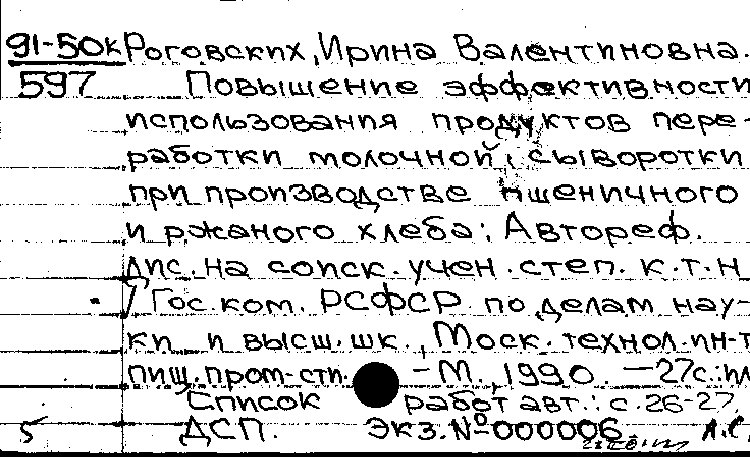 91-50к Роговских, Ирина Валентиновна.
597 Повышение эффективности
использования продуктов пере-
работки молочной сыворотки
при производстве пшеничного
и ржаного хлеба: Автореф.
дис. на соиск. учен. степ. к.т.н
/ Гос. ком. РСФСР по делам нау-
ки и высш. шк., Моск. технол. ин-т
пищ. пром-сти. - М., 1990. - 27с.: ил
Список работ авт.: с. 26-27.
5 ДСП. Экз. № 000006